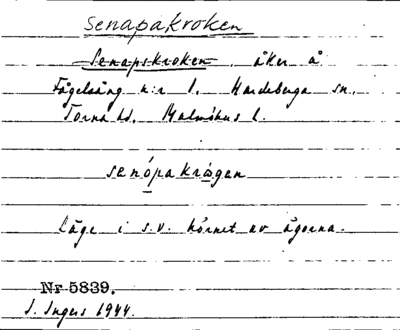 Senapakroken
Senapskroken, åker å
Fågelsång n:r 1. Hardeberga sn.
Torna hd. Malmöhus l.
senópakrågen
Läge i s.v. hörnet av ägorna.
Nr 5839.
I. Ingers 1944.